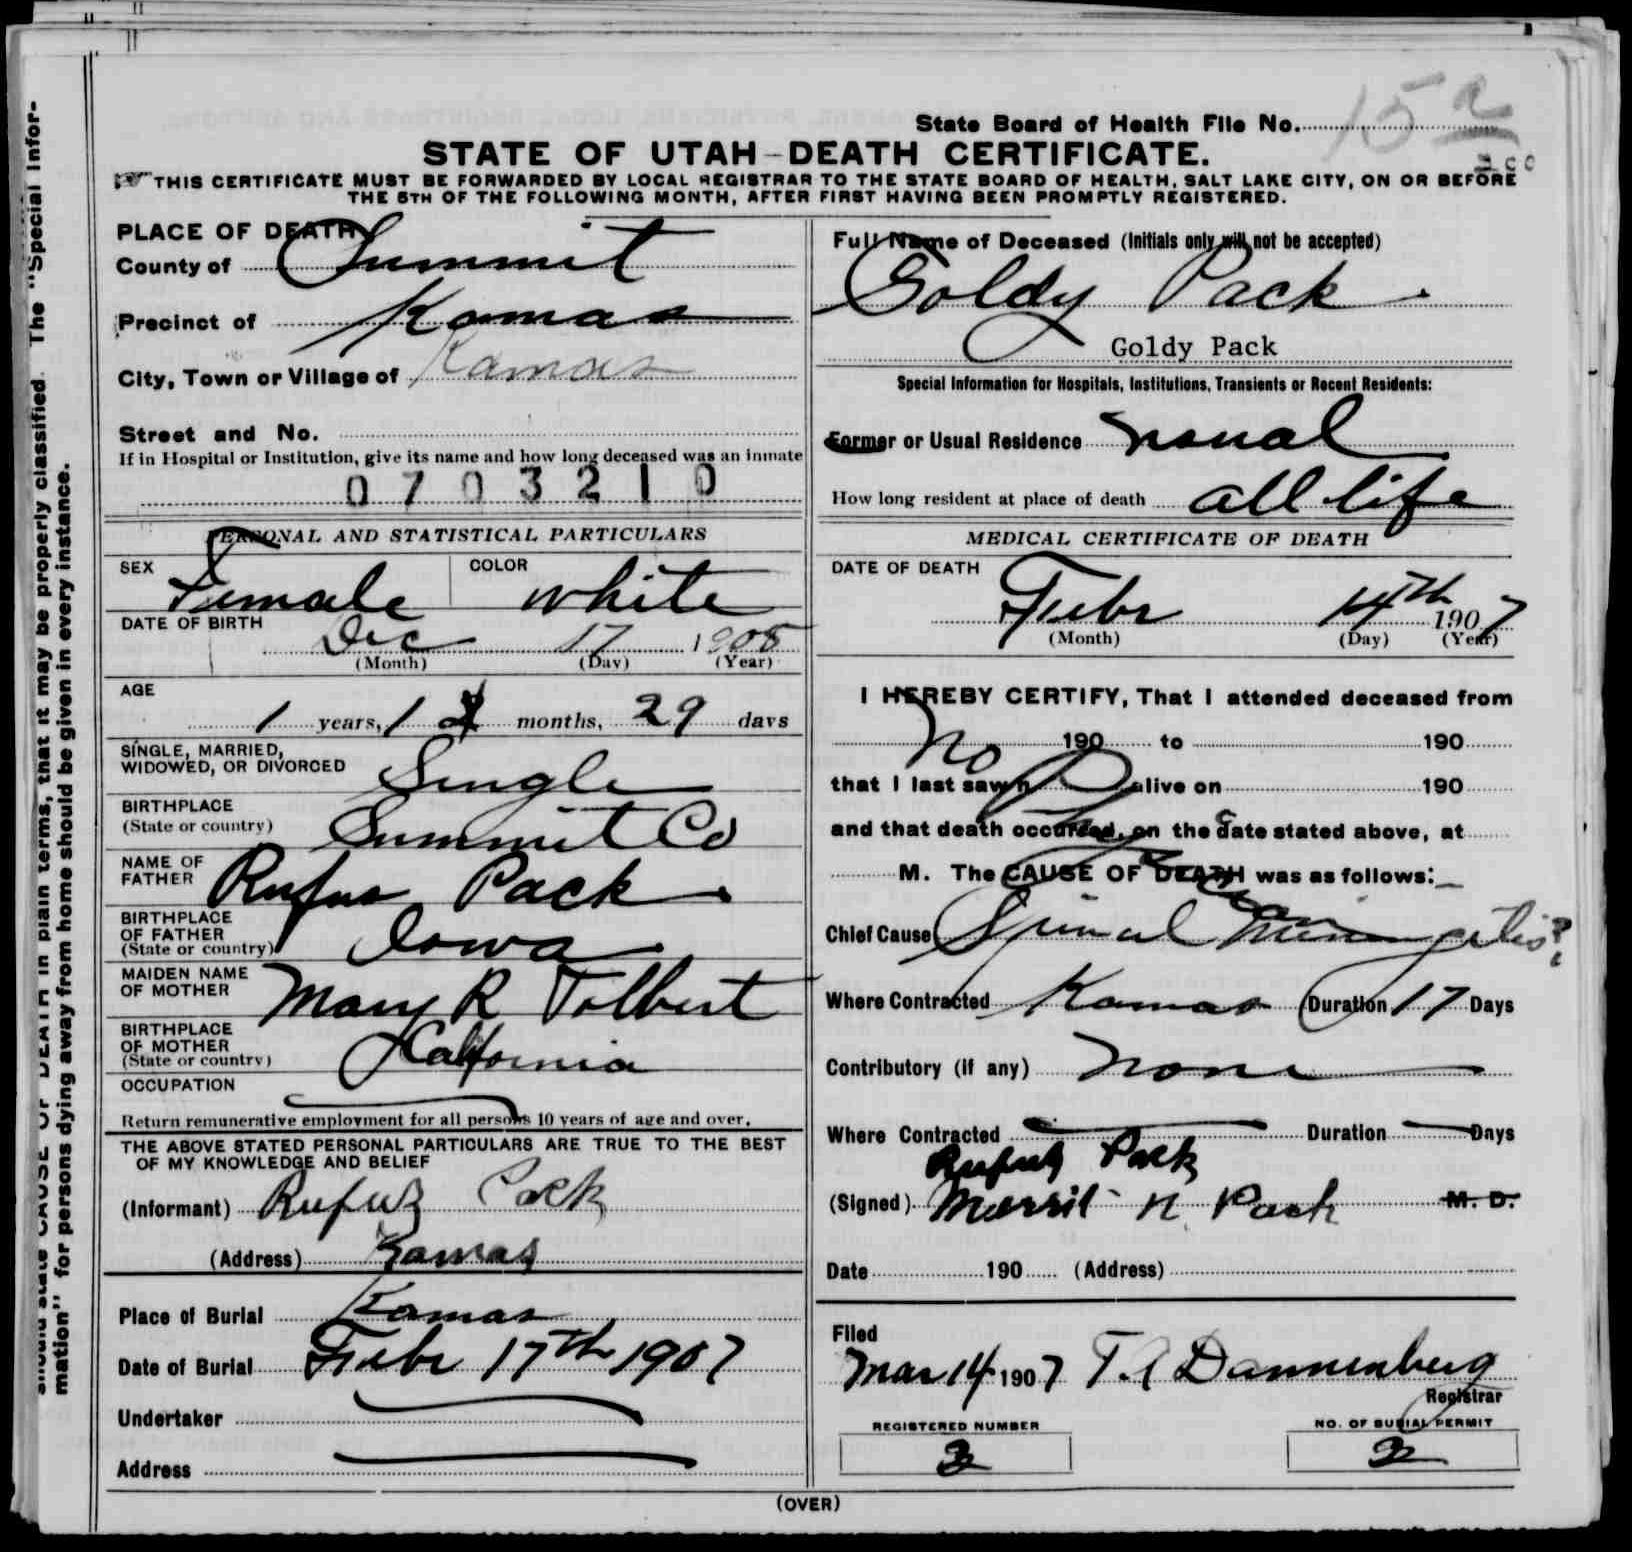 State Board of Health File No. 15
STATE OF UTAH-DEATH CERTIFICATE.
THIS CERTIFICATE MUST BE FORWARDED BY LOCAL REGISTRAR TO THE STATE BOARD OF HEALTH, SALT LAKE CITY, ON OR BEFORE
THE 5TH OF THE FOLLOWING MONTH, AFTER FIRST HAVING BEEN PROMPTLY REGISTERED.
PLACE OF DEATH
County of Summit
Precinct of Kamas
City, Town or Village of Kamas
Street and No.
If in Hospital or Institution, give its name and how long deceased was an inmate
0703210
PERSONAL AND STATISTICAL PARTICULARS
SEX Female COLOR white
DATE OF BIRTH Dec 17 1905
(Month) (Day) (Year)
AGE
1 years, 1 months, 29 days
SINGLE, MARRIED,
WIDOWED, OR DIVORCED Single
BIRTHPLACE
(State or country) Summit Co
NAME OF
FATHER Rufus Pack
BIRTHPLACE
OF FATHER
(State or country) Iowa
MAIDEN NAME
OF MOTHER Mary R Tolbert
BIRTHPLACE
OF MOTHER
(State or country) California
OCCUPATION
Return remunerative employment for all persons 10 years of age and over.
THE ABOVE STATED PERSONAL PARTICULARS ARE TRUE TO THE BEST
OF MY KNOWLEDGE AND BELIEF
(Informant) Rufus Pack
(Address) Kamas
Place of Burial Kamas
Date of Burial Febr 17th 1907
Undertaker
Address
Full Name of Deceased (Initials only will not be accepted)
Goldy Pack
Goldy Pack
Special Information for Hospitals, Institutions, Transients or Recent Residents:
Former or Usual Residence usual
How long resident at place of death all life
MEDICAL CERTIFICATE OF DEATH
DATE OF DEATH
Febr 14th 1907
(Month) (Day) (Year)
I HEREBY CERTIFY, That I attended deceased from
No 190 to 190
that I last saw h alive on 190
and that death occurred, on the date stated above, at
M. The CAUSE OF DEATH was as follows:
Chief Cause Spinal Meningetis?
Where Contracted Kamas Duration 17 Days
Contributory (if any) none
Where Contracted Duration Days
Rufus Pack
(Signed) Merril N Pack M. D.
Date 190 (Address)
Filed
Mar 14 1907 T. A Dannenberg
Registrar
REGISTERED NUMBER NO. OF BURIAL PERMIT
3 2
(OVER)
The "Special Infor-
should state CAUSE OF DEATH in plain terms, that it may be properly classified.
mation" for persons dying away from home should be given in every instance.